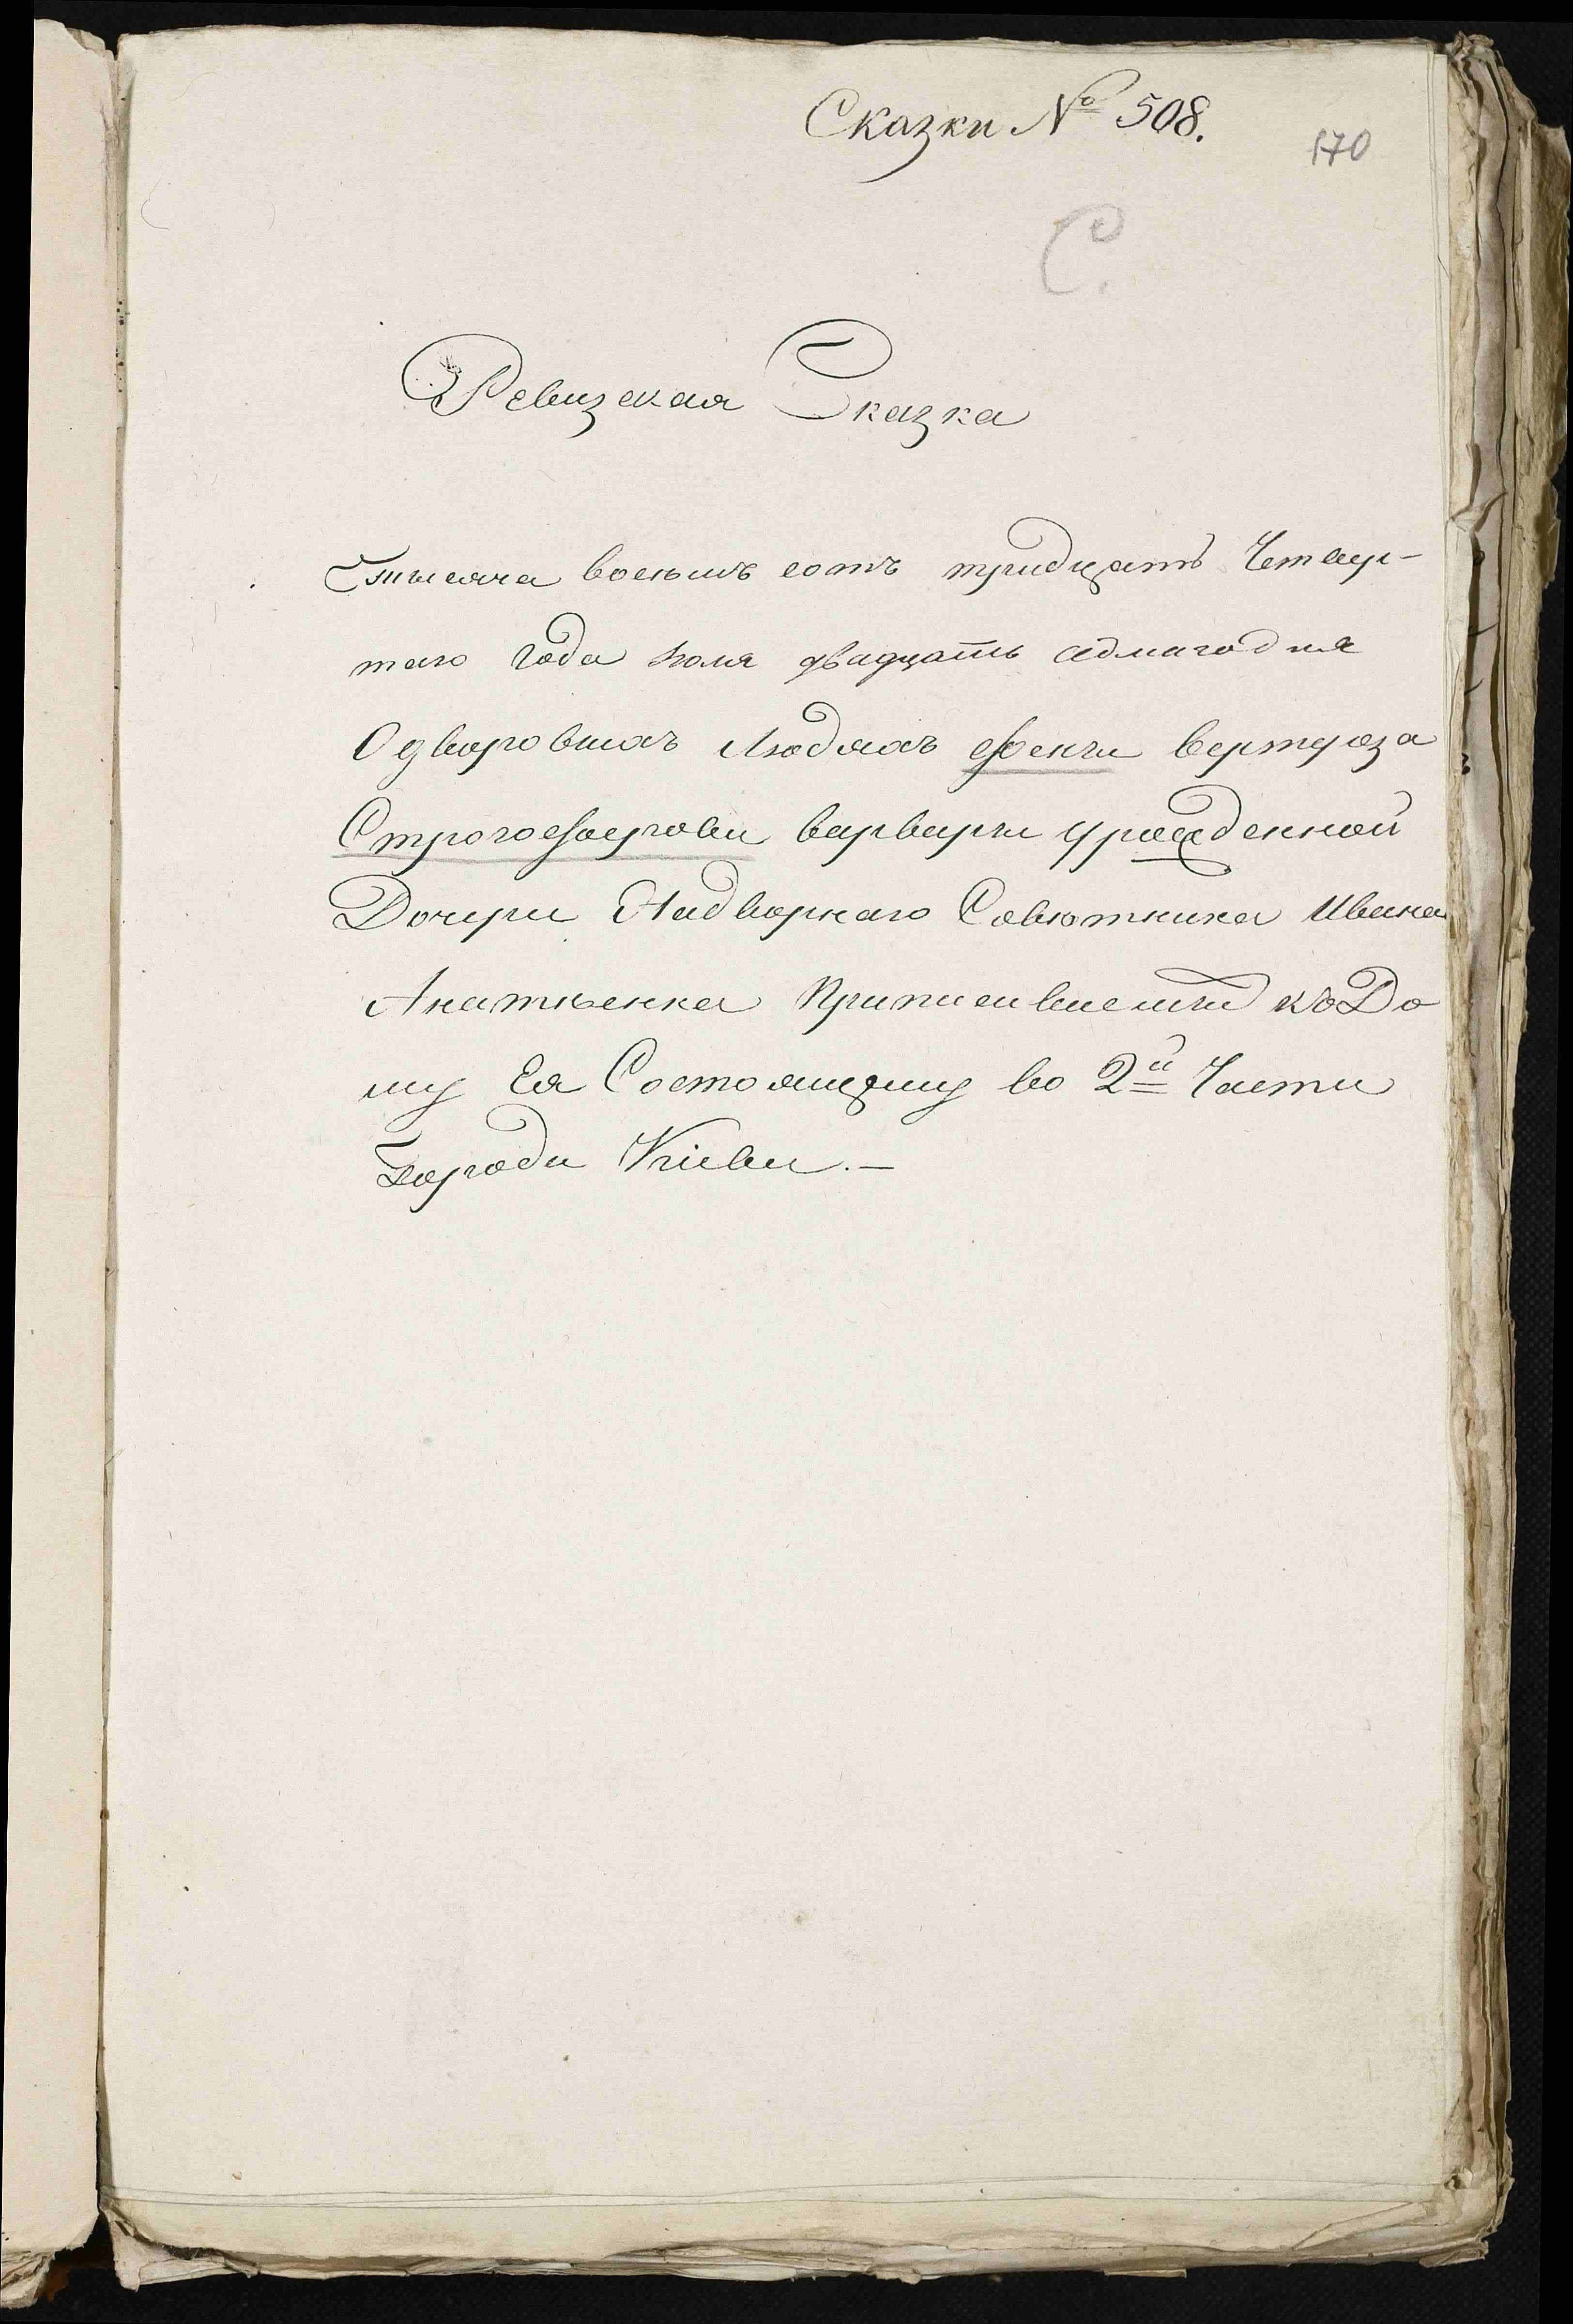 Сказки № 508.
170
С.
Ревизская Сказка
Тысяча восемъ сотъ тридцать Четвер-
таго Года Июля двадцать адмагодня
Одворовыхъ Людяхъ жены
Строгос варвары урожденной
Дочери Надворнаго Советника Ивана
Анатьенка Приписавшемъ къ До
му Ея Состоящему во 2й Части
Города Кіева.—